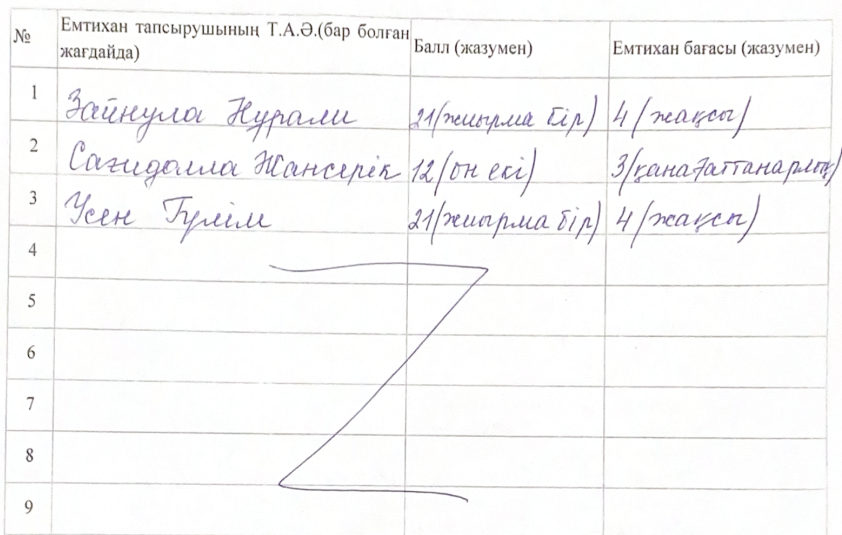 № Емтихан тапсырушының Т.А.Ә.(бар болған жағдайда) Балл (жазумен) Емтихан бағасы (жазумен)
1 Зайнула Нұрали 21(жиырма бір) 4 (жақсы)
2 Сагидолла Жансерік 12 (он екі) 3(қанағаттанарлық)
3 Усен Гүлім 21(жиырма бір) 4 (жақсы)
4
5
6
7
8
9